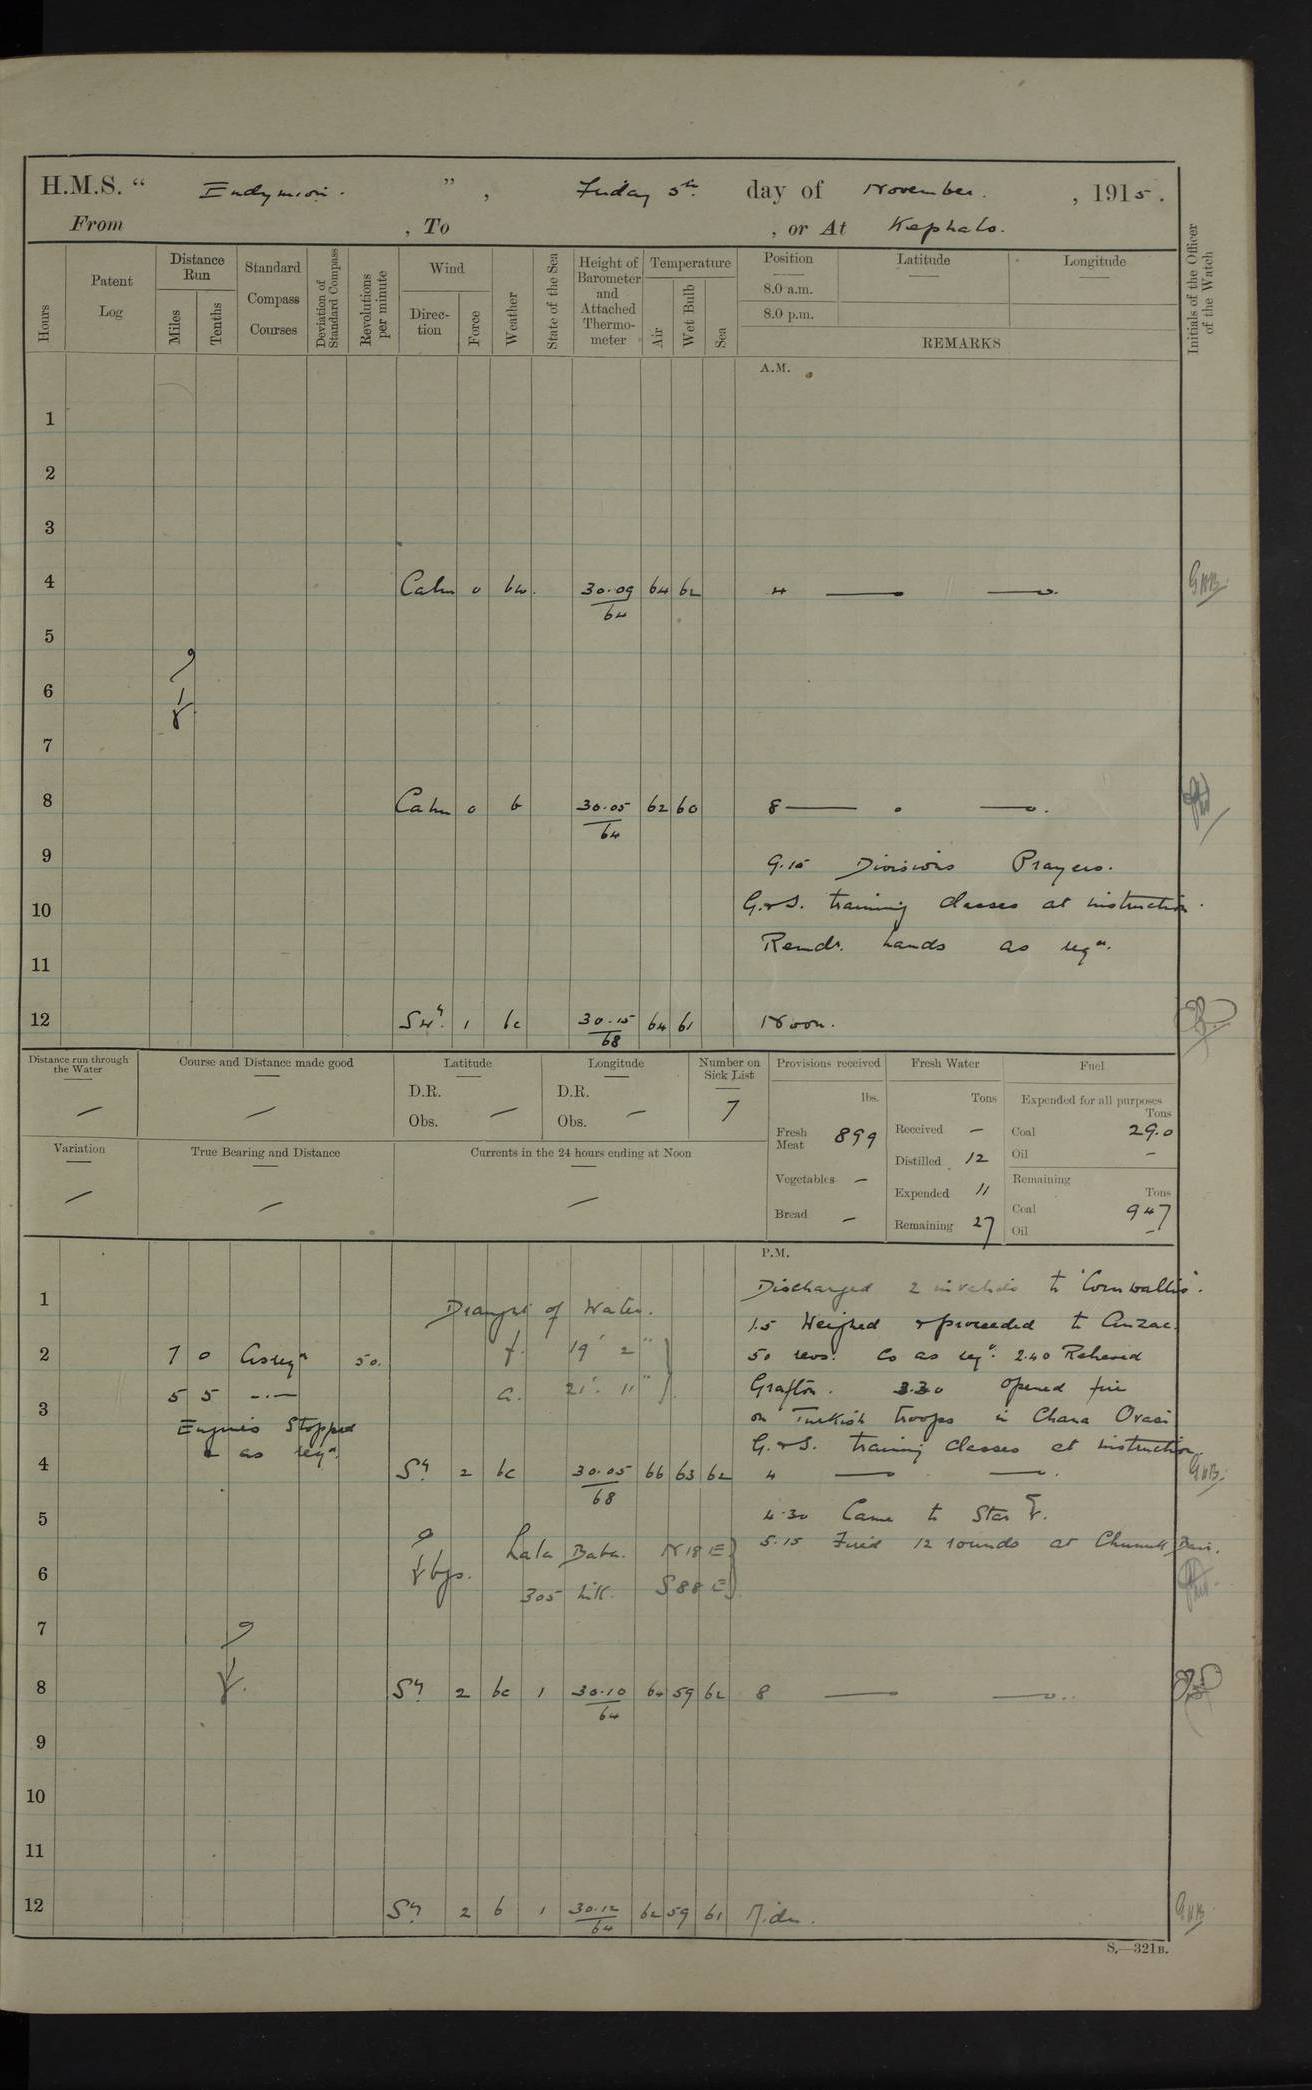 H.M.S. " Endymion. ", Friday 5th day of November. , 1915.
From , To , or At Kephalo.
Hours
Patent Log
Distance Run
Miles
Tenths
Standard Compass Courses
Deviation of Standard Compass
Revolutions per minute
Wind
Direction
Force
Weather
State of the Sea
Height of Barometer and Attached Thermometer
Temperature
Air
Wet Bulb
Sea
Position
8.0 a.m.
8.0 p.m.
Latitude
Longitude
REMARKS
Initials of the Officer of the Watch
A.M.
1
2
3
4 Calm 0 bw. 30.09/64 64 62 4 — —. GHB
5
6
7
8 Calm 0 b 30.05/64 62 60 8 — —.
9 9.15 Divisions Prayers.
10 G. & S. training classes at instruction.
Remdr. hands as reqd.
11
12 SWly. 1 bc 30.15/68 64 61 Noon.
Distance run through the Water
—
Course and Distance made good
—
Latitude
D.R.
Obs. —
Longitude
D.R.
Obs. —
Number on Sick List
7
Provisions received
lbs.
Fresh Meat 899
Vegetables —
Bread —
Fresh Water
Tons
Received —
Distilled 12
Expended 11
Remaining 27
Fuel
Expended for all purposes
Tons
Coal 29.0
Oil —
Remaining
Tons
Coal 947
Oil —
Variation
—
True Bearing and Distance
—
Currents in the 24 hours ending at Noon
—
P.M.
Discharged 2 invalids to 'Cornwallis'.
1 Draught of Water.
1.5 Weighed & proceeded to Anzac.
2 7 0 As reqd 50. f. 19' 2" 50 revs. Co as reqd. 2.40 Relieved
5 5 -.- a. 21' 11" Grafton. 3.30 opened fire
3 Engines Stopped on Turkish troops in Chana Ovasi
& as reqd. G. & S. training classes at instruction.
4 Sly. 2 bc 30.05/68 66 63 62 4 — —. GHB.
5 4.30 Came to Star
Lala Baba. N18E 5.15 Fired 12 rounds at Chunuk Bair.
6 bgs. 305 hill. S88E
7
8 Sly. 2 bc 1 30.10/64 64 59 62 8 — —.
9
10
11
12 Sly. 2 b 1 30.12/64 62 59 61 Midn. GHB
S.—321B.